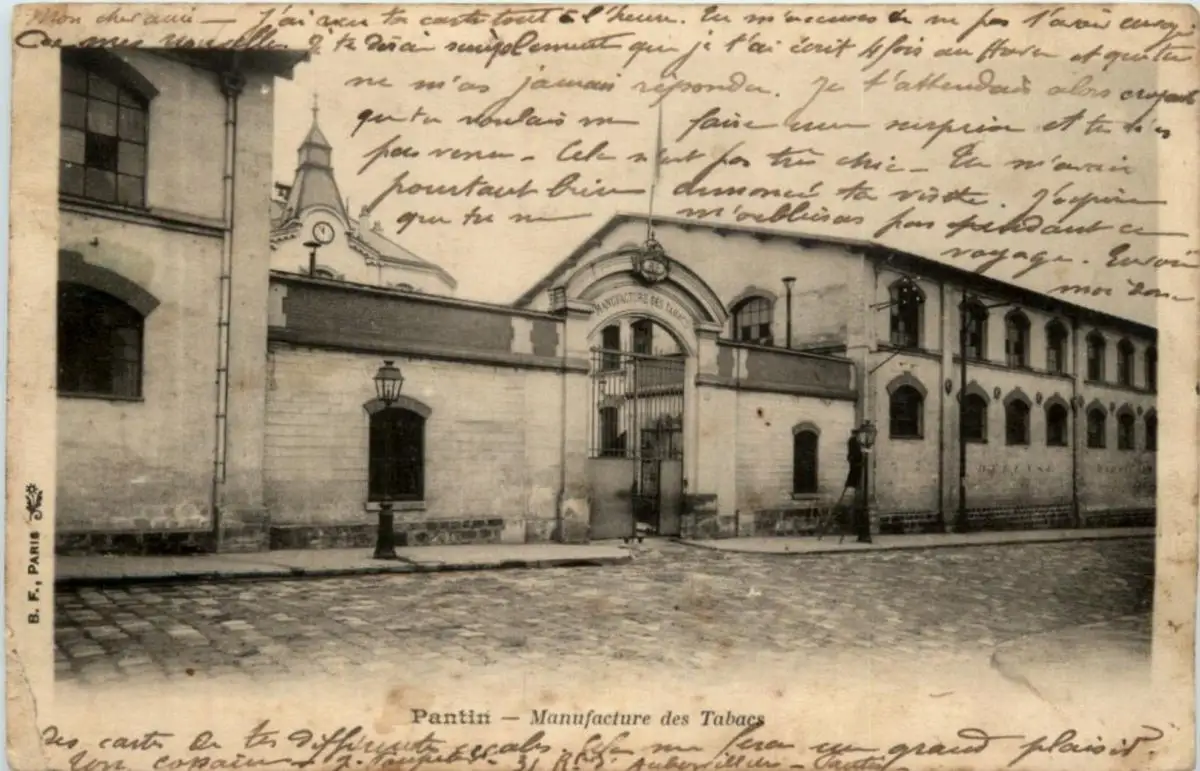 Mon cher ami – J'ai reçu ta carte tout à l'heure. Tu m'accuses de ne pas t'avoir envoyé
de mes nouvelles. J'te dirai simplement que je t'ai écrit 4 fois au Havre et que tu
ne m'as jamais répondu. Je t'attendais alors croyant
que tu voulais me faire une surprise et tu n'es
pas venu – Cela n'est pas très chic – Tu m'avais
pourtant bien annoncé ta visite. J'espère
que tu ne m'oublieras pas pendant ce
voyage. Envoie
moi donc
MANUFACTURE DES TABACS
DÉFENSE
B. F., PARIS
Pantin – Manufacture des Tabacs
des cartes de tes différentes escales. Cela me fera un grand plaisir.
Ton copain – 31 R. Aubervilliers – Pantin